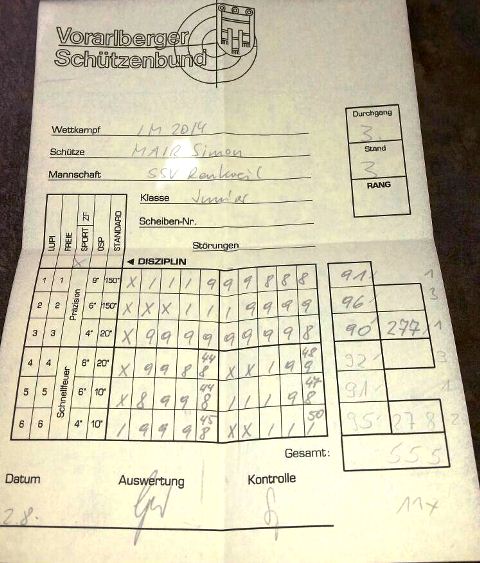 Vorarlberger
Schützenbund
Wettkampf LM 2014
Schütze MAIR Simon
Mannschaft SSV Rankweil
Klasse Junior
Scheiben-Nr.
Störungen
Durchgang
3.
Stand
3
RANG
LUPI FREIE SPORT ZF OSP STANDARD
X
◄ DISZIPLIN
Präzision
Schnellfeuer
1 1 8" 150" X 1 1 1 9 9 9 8 8 8 91 1
2 2 6" 150" X X X 1 1 1 9 9 9 9 96 3
3 3 4" 20" X 9 9 9 9 9 9 9 9 8 90 277 1
4 4 8" 20" X 9 9 8 8 44 X X 1 9 9 48 92 3
5 5 6" 10" X 8 9 9 8 44 1 1 1 9 8 47 91 1
6 6 4" 10" 1 9 9 9 8 45 X X 1 1 1 50 95 278 2
Gesamt: 555
Datum Auswertung Kontrolle
2.8.
11x